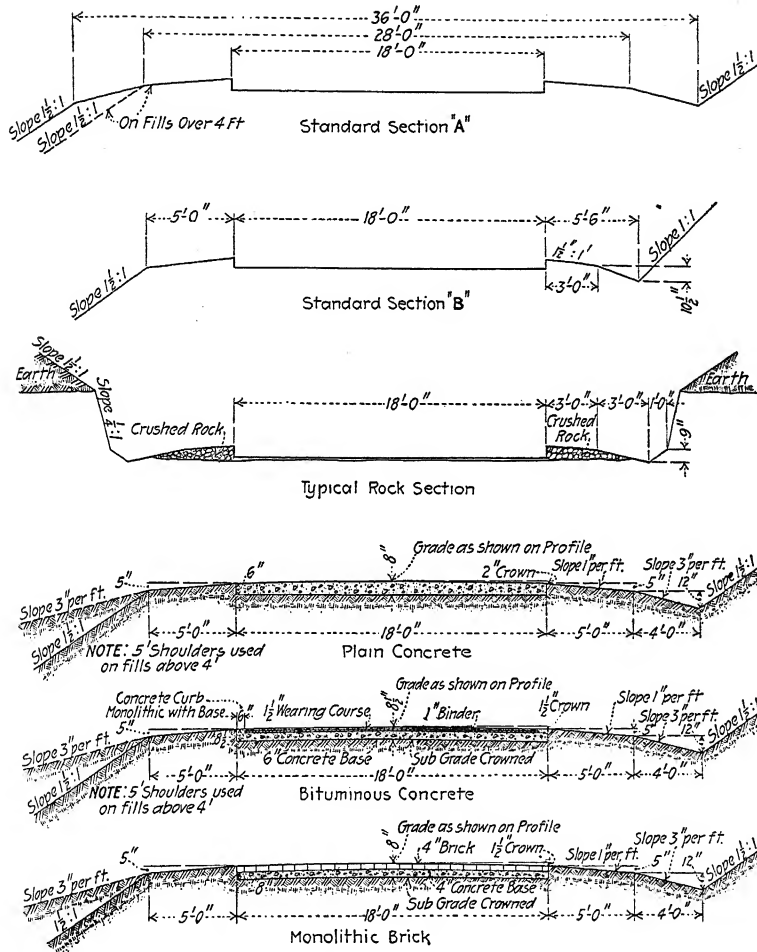 36'-0"
28'-0"
18'-0"
Slope 1½:1
Slope 1½:1
On Fills Over 4 Ft
Slope 1½:1
Standard Section "A"
5'-0"
18'-0"
5'-6"
Slope 1½:1
1½":1'
3'-0"
Slope 1:1
10½"
Standard Section "B"
Slope 1½:1
Earth
Slope ¼:1
Crushed Rock
18'-0"
3'-0"
3'-0"
1'-0"
Crushed Rock
Earth
9"
Typical Rock Section
Slope 3" per ft.
Slope 1½:1
5"
6"
8"
Grade as shown on Profile
2" Crown
Slope 1" per ft.
Slope 3" per ft.
5"
12"
Slope 1½:1
5'-0"
18'-0"
5'-0"
4'-0"
NOTE: 5' Shoulders used
on fills above 4'
Plain Concrete
Concrete Curb
Monolithic with Base
6"
1½" Wearing Course
8½"
Grade as shown on Profile
1" Binder
1½" Crown
Slope 1" per ft
Slope 3" per ft.
5"
12"
Slope 1½:1
Slope 3" per ft.
Slope 1½:1
5"
8½"
6" Concrete Base
Sub Grade Crowned
5'-0"
18'-0"
5'-0"
4'-0"
NOTE: 5' Shoulders used
on fills above 4'
Bituminous Concrete
Slope 3" per ft.
1½:1
5"
8"
Grade as shown on Profile
4" Brick
1½" Crown
Slope 1" per ft.
Slope 3" per ft.
5"
12"
Slope 1½:1
8"
4" Concrete Base
Sub Grade Crowned
5'-0"
18'-0"
5'-0"
4'-0"
Monolithic Brick